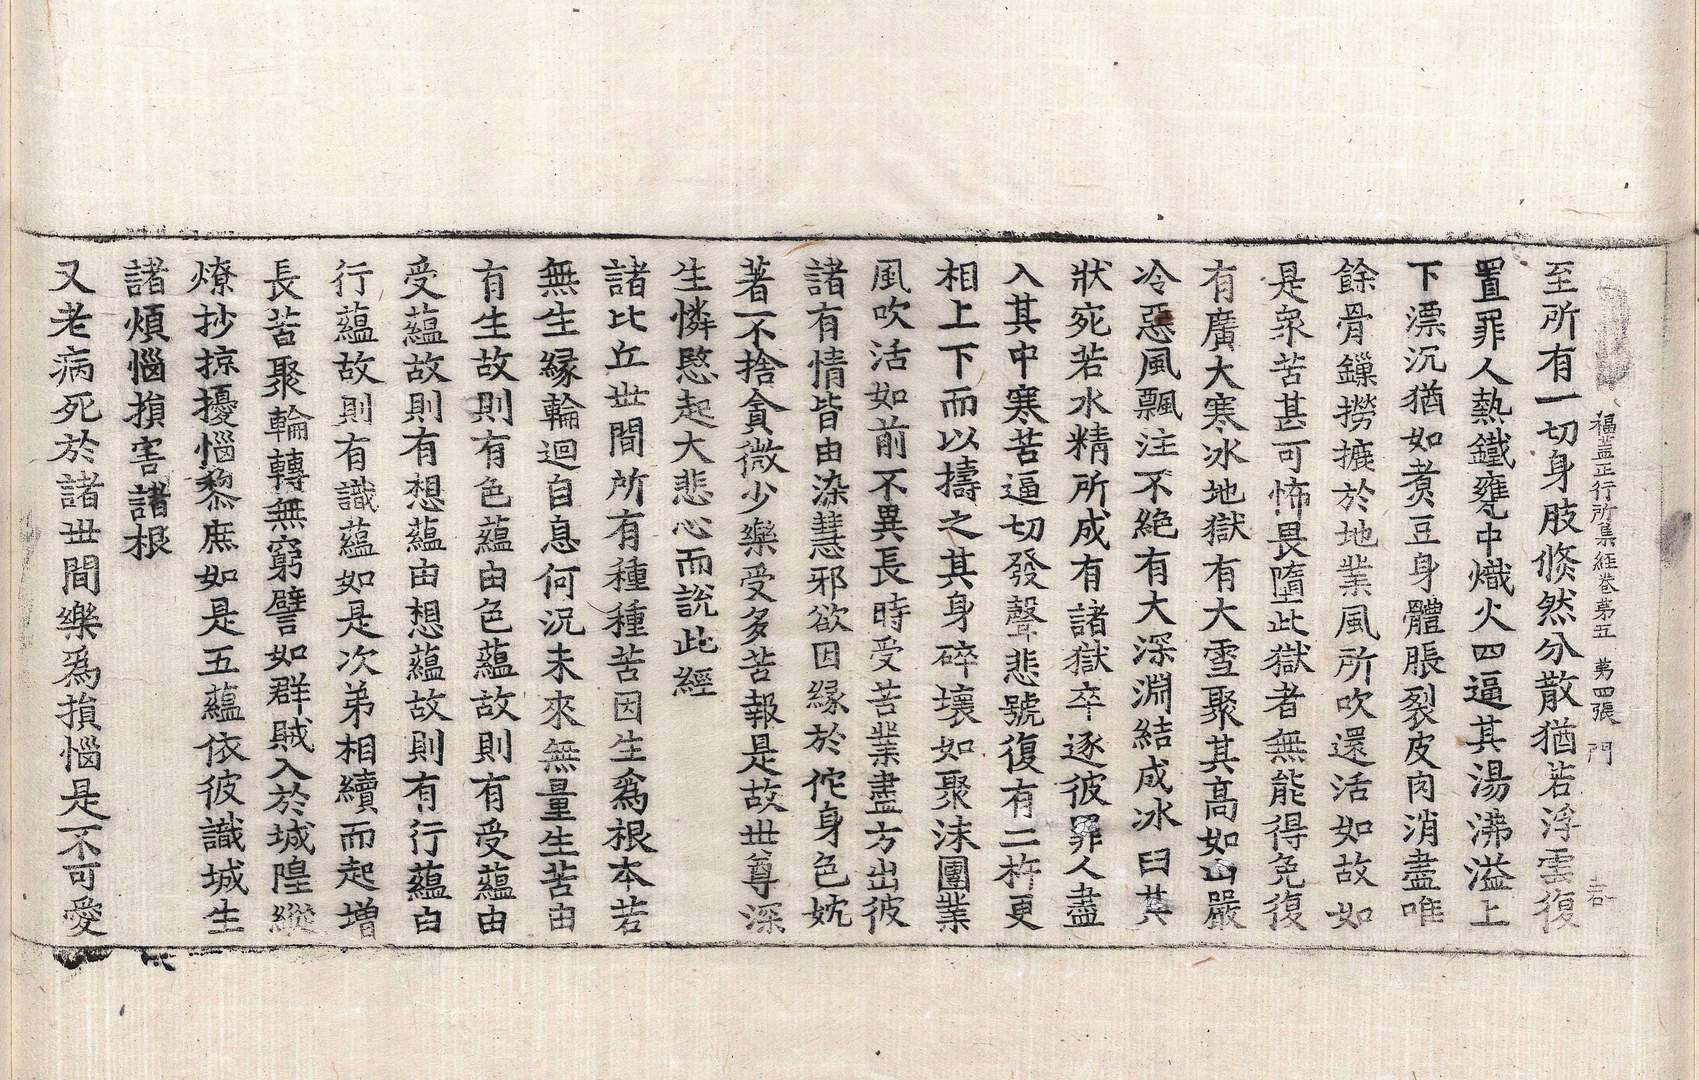 福蓋正行所集經卷第五 第四張 門
至所有一切身肢倏然分散猶若浮雲復
置罪人熱鐵甕中熾火四逼其湯沸溢上
下漂沉猶如煮豆身體脹裂皮肉消盡唯
餘骨鏁撈摝於地業風所吹還活如故如
是衆苦甚可怖畏墮此獄者無能得免復
有廣大寒冰地獄有大雪聚其高如山嚴
冷惡風飄注不絶有大深淵結成冰臼其
狀宛若水精所成有諸獄卒逐彼罪人盡
入其中寒苦逼切發聲悲號復有二杵更
相上下而以擣之其身碎壞如聚沫團業
風吹活如前不異長時受苦業盡方出彼
諸有情皆由染慧邪欲因緣於佗身色躭
著不捨貪微少樂受多苦報是故世尊深
生憐愍起大悲心而説此經
諸比丘世間所有種種苦因生爲根本若
無生緣輪迴自息何況未來無量生苦由
有生故則有色蘊由色蘊故則有受蘊由
受蘊故則有想蘊由想蘊故則有行蘊由
行蘊故則有識蘊如是次弟相續而起增
長苦聚輪轉無窮譬如群賊入於城隍縱
燎抄掠擾惱黎庶如是五蘊依彼識城生
諸煩惱損害諸根
又老病死於諸世間樂爲損惱是不可愛